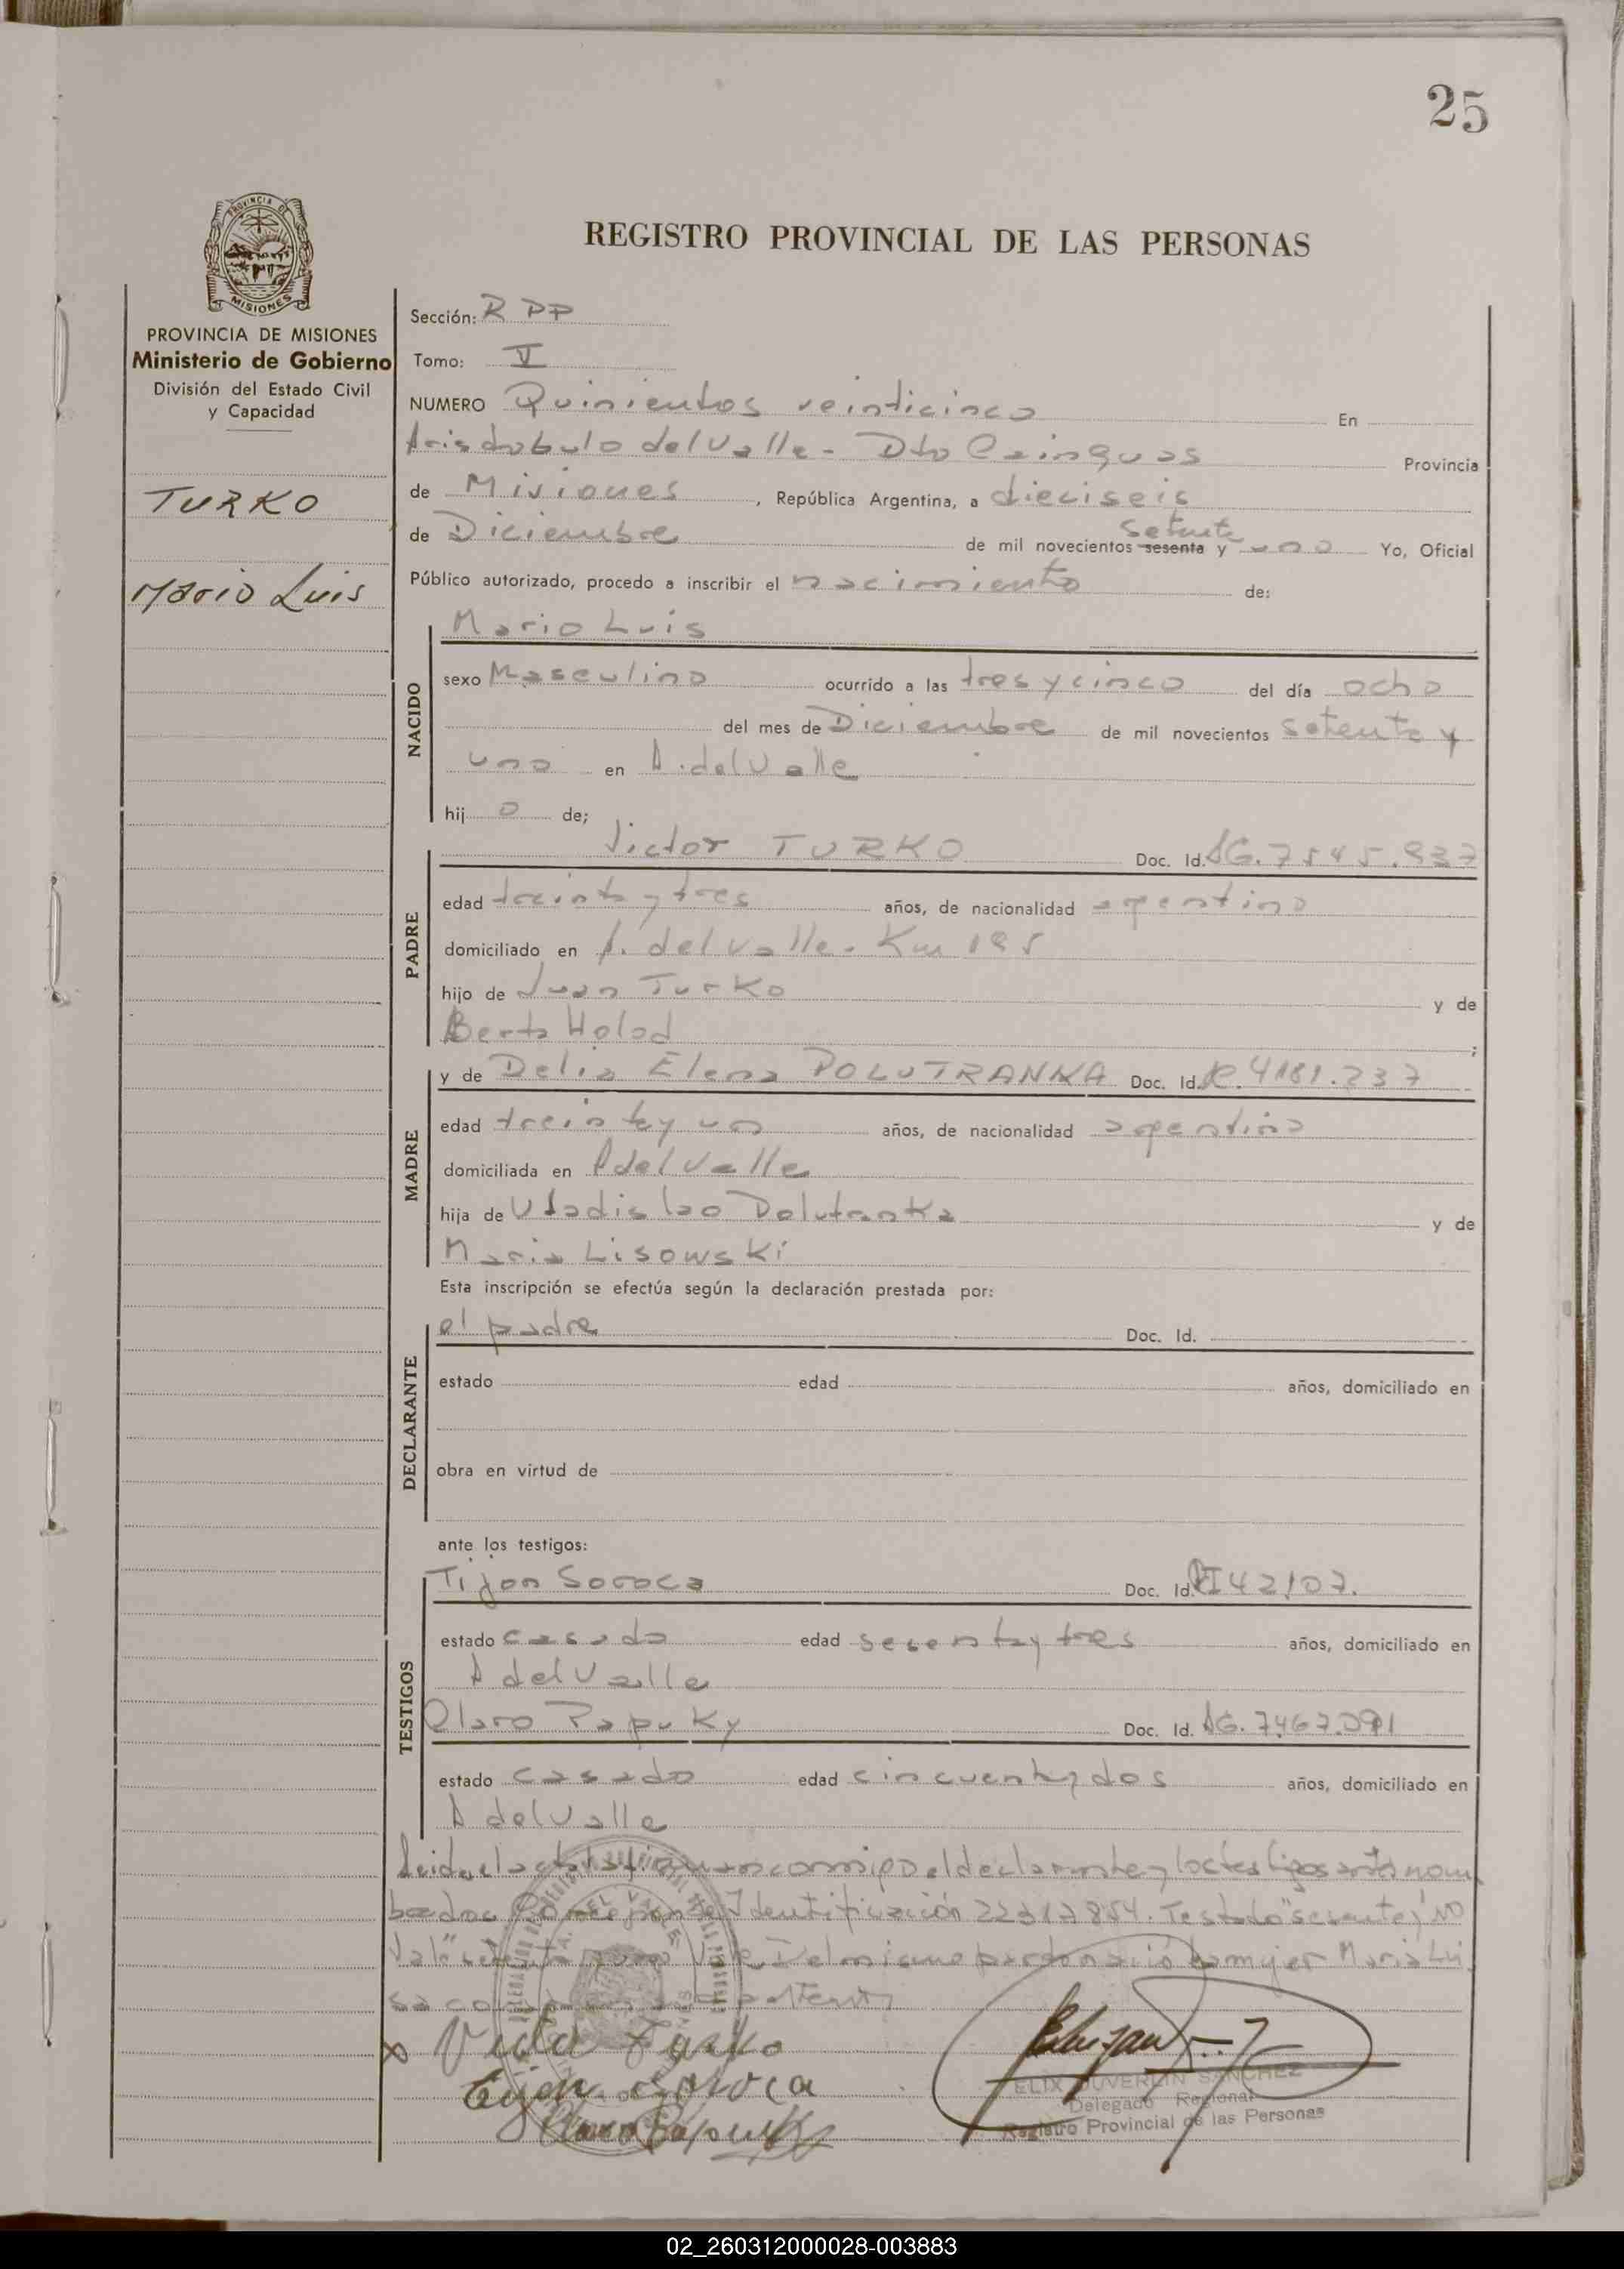 25
PROVINCIA DE
MISIONES
REGISTRO PROVINCIAL DE LAS PERSONAS
PROVINCIA DE MISIONES
Ministerio de Gobierno
División del Estado Civil
y Capacidad
TURKO
Mario Luis
Sección: R PP
Tomo: V
NUMERO Quinientos veinticinco En
Aristobulo del Valle - Dto Cainguas Provincia
de Misiones, República Argentina, a dieciseis
setenta
de Diciembre de mil novecientos sesenta y uno Yo, Oficial
Público autorizado, procedo a inscribir el nacimiento de:
NACIDO
Mario Luis
sexo Masculino ocurrido a las tres y cinco del día ocho
del mes de Diciembre de mil novecientos setenta y
uno en A. del Valle
hij o de;
PADRE
Victor TURKO Doc. Id. AG. 7545.937
edad treinta y tres años, de nacionalidad argentino
domiciliado en A. del Valle - Km 195
hijo de Juan Turko y de
Berta Holod ;
MADRE
y de Delia Elena POLUTRANKA Doc. Id. R. 4181.237
edad treinta y un años, de nacionalidad argentina
domiciliada en A del Valle
hija de Uladislao Polutranka y de
Maria Lisowski
Esta inscripción se efectúa según la declaración prestada por:
DECLARANTE
el padre Doc. Id.
estado edad años, domiciliado en
obra en virtud de
ante los testigos:
TESTIGOS
Tijon Soroca Doc. Id. 42107.
estado casado edad sesenta y tres años, domiciliado en
A del Valle
Claro Papuky Doc. Id. AG. 7467.091
estado casado edad cincuenta y dos años, domiciliado en
A del Valle
Leida el acta la firman conmigo el declarante y los testigos antes nom
brados Corresponde Identificación 22317854. Testado "sesenta" NO
Vale "setenta" Vale. Del mismo parto nació la mujer Maria Lui
sa
Tijon Soroca
Claro Papuky
FELIX DUVERLIN SANCHEZ
Delegado Regional
Registro Provincial de las Personas
02_260312000028-003883